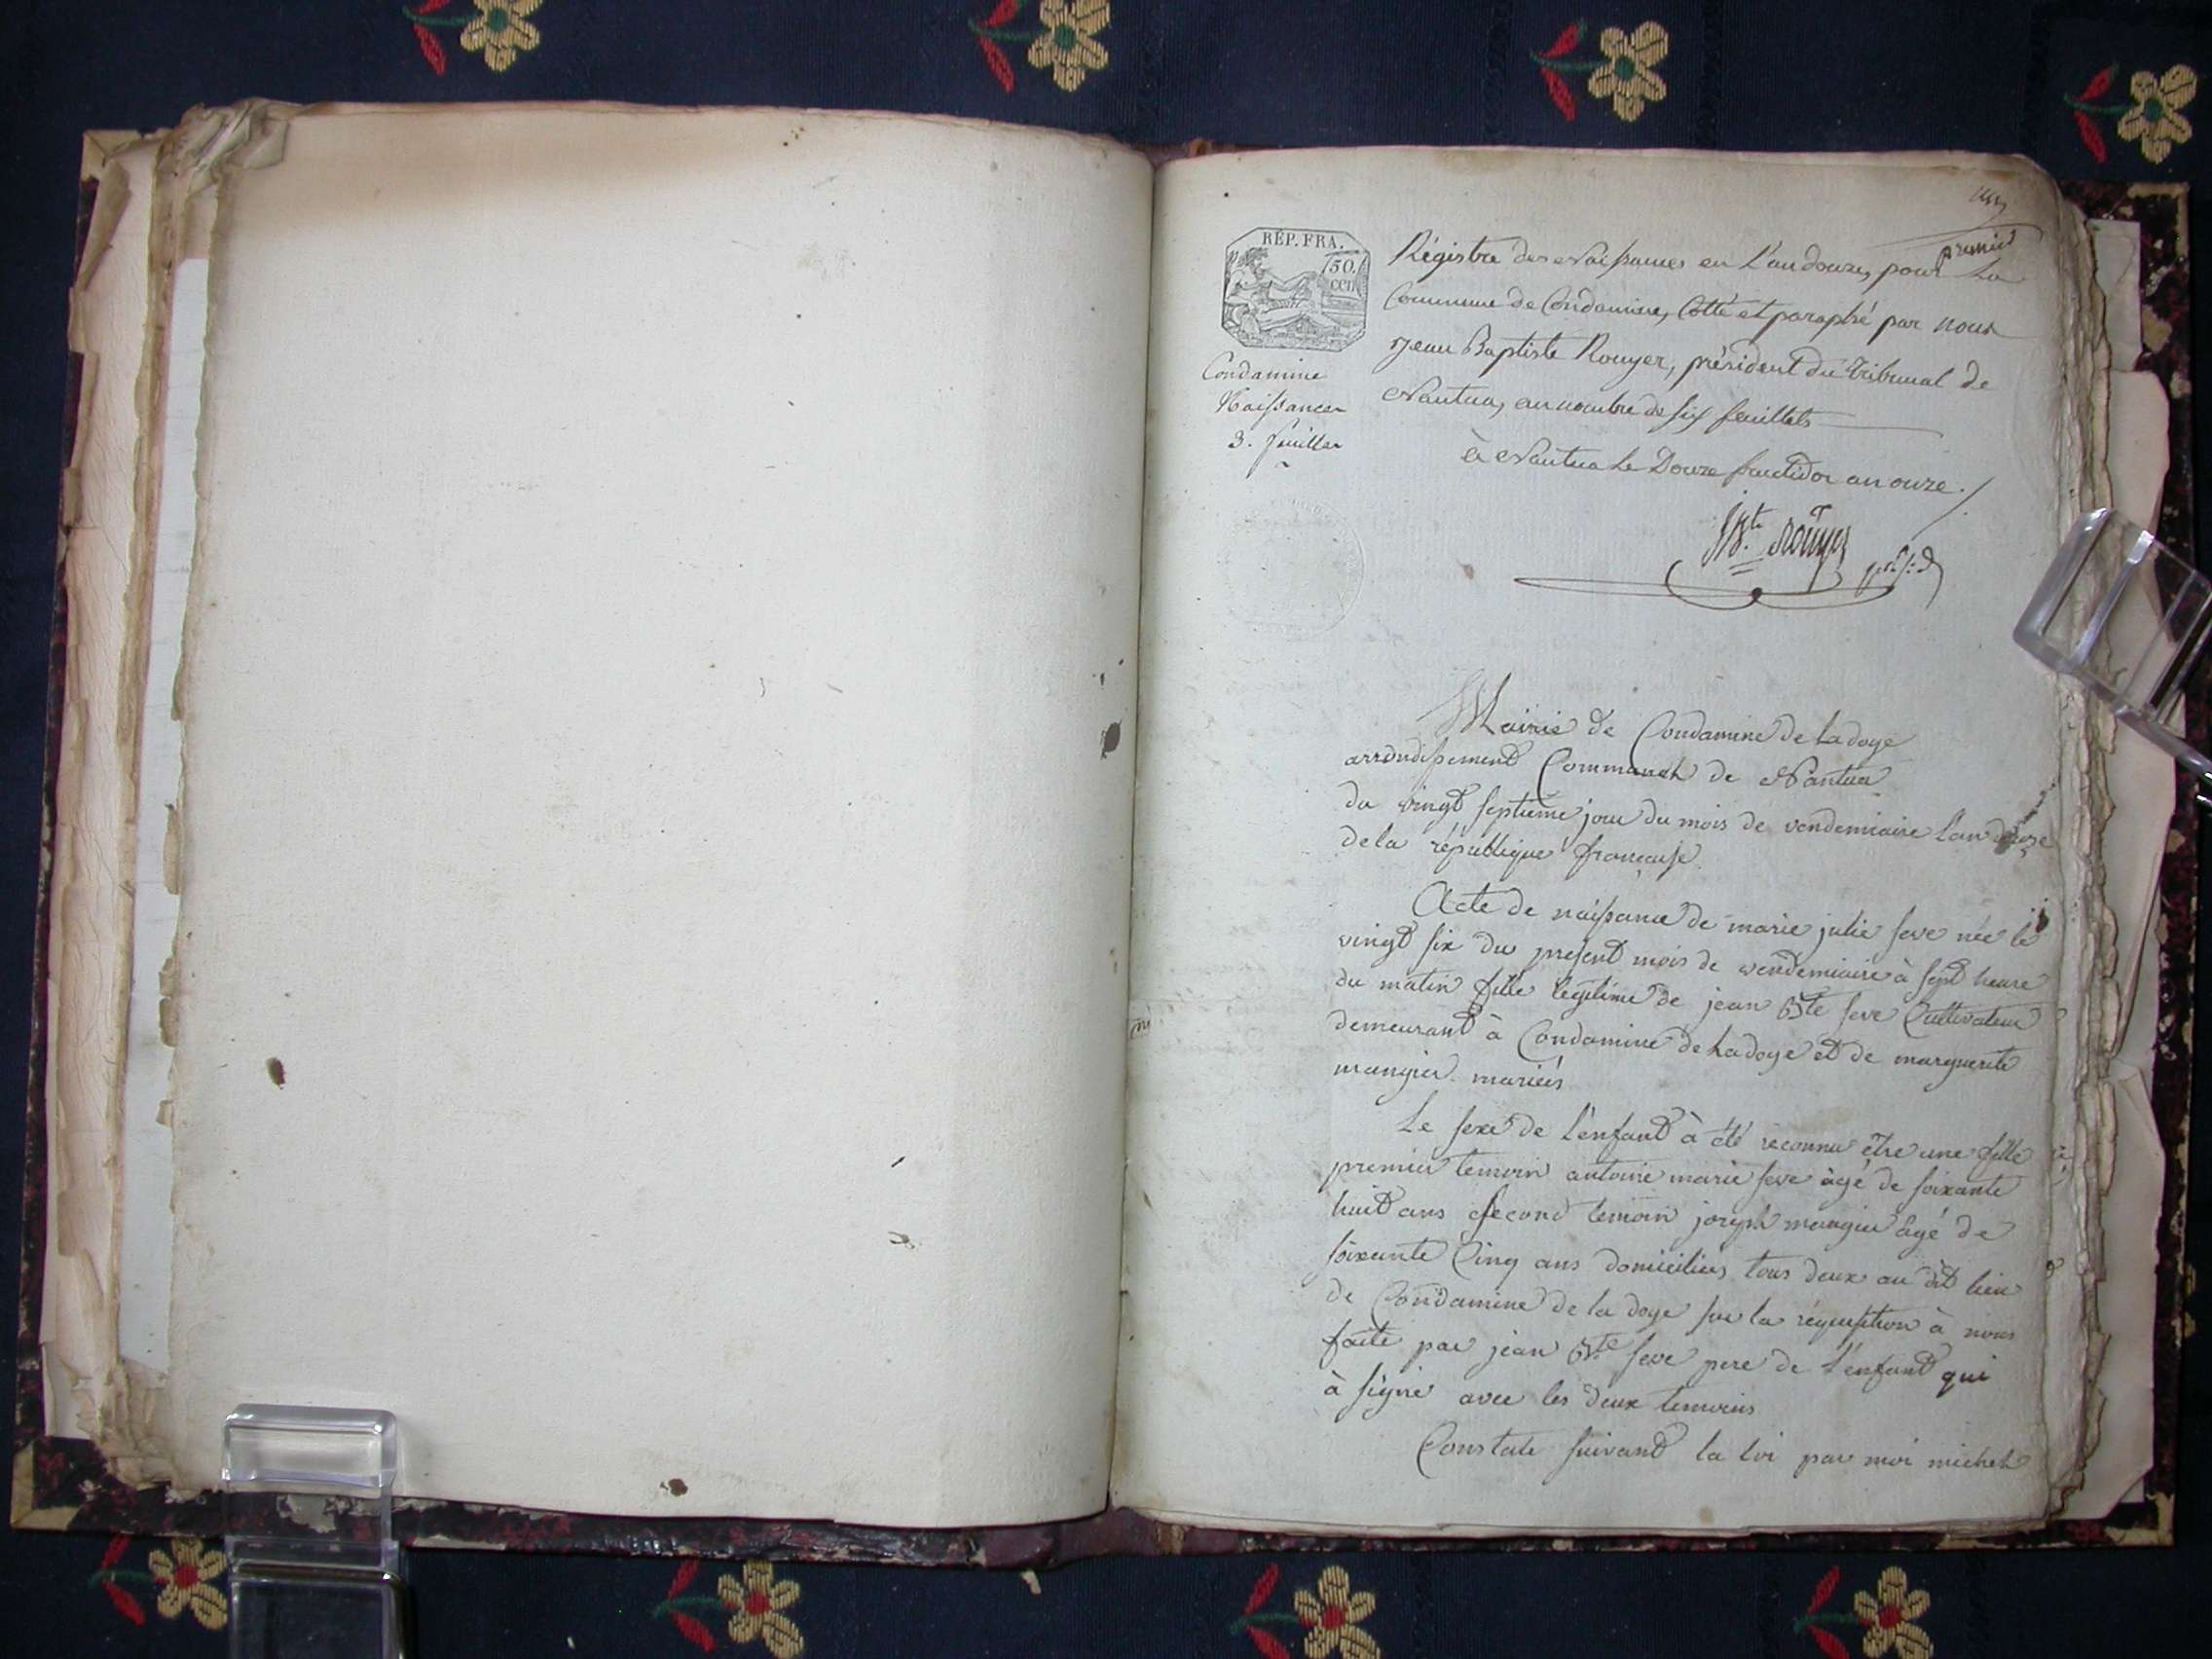 premier
RÉP. FRA.
50.
CEN
Condamine
Naissances
3. feuilles
Régistre des Naissances en L'an douze, pour La
Commune de Condamine, Cotté et paraphé par nous
Jean Baptiste Rouyer, président du Tribunal de
Nantua, au nombre de six feuillets
à Nantua le Douze fructidor an onze ./
JBte Rouyer présid
Mairie de Condamine de la doye
arrondissement Communal de Nantua
du vingt septieme jour du mois de vendemiaire l'an douze
de la république française
Acte de naissance de marie julie seve née le
vingt six du present mois de vendemiaire à sept heure
du matin fille legitime de jean Bte seve Cultivateur
demeurant à Condamine de la doye et de marguerite
mangier mariés
Le sexe de l'enfant à été reconnu être une fille
premier temoin antoine marie seve âgé de soixante
huit ans second temoin joseph mangier âgé de
soixante Cinq ans domiciliés tous deux au dit lieu
de Condamine de la doye sur la requisition à nous
faite par jean Bte seve pere de l'enfant qui
à signé avec les deux temoins
Constaté suivant la loi par moi michel